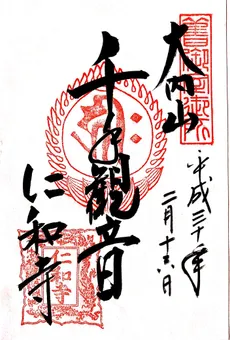 大内山
平成三十年
二月十六日
千手觀音
仁和寺
仁和寺